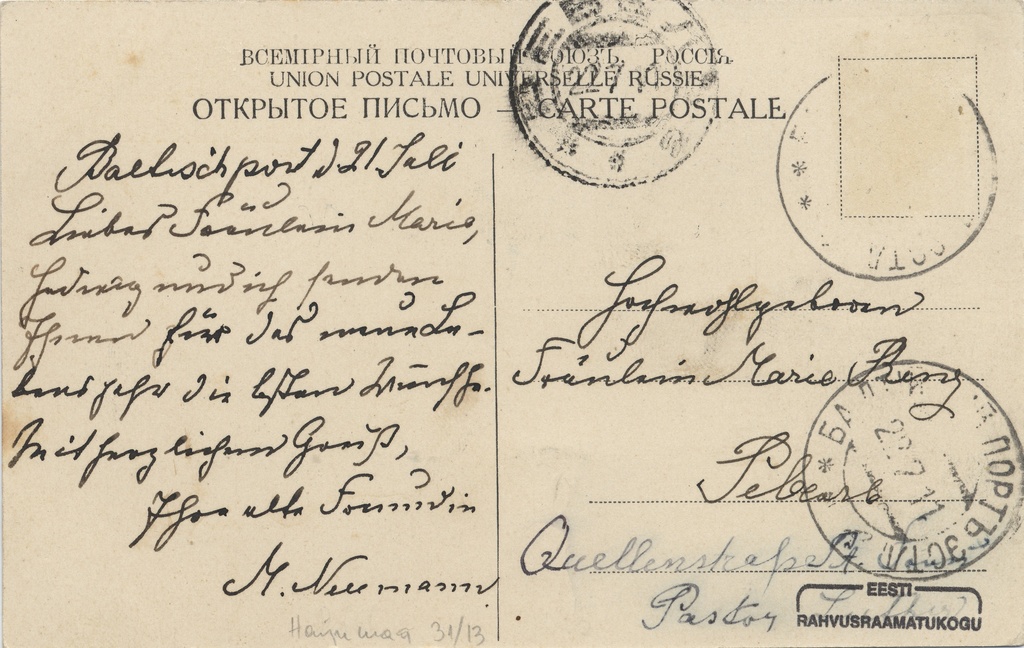 ВСЕМІРНЫЙ ПОЧТОВЫЙ СОЮЗЪ. РОССІЯ.
UNION POSTALE UNIVERSELLE RUSSIE.
ОТКРЫТОЕ ПИСЬМО — CARTE POSTALE
Baltischport d 21 Juli
Liebes Fräulein Marie,
Hedwig und ich senden
Ihnen für das neue Le-
bensjahr die besten Wünsche.
Mit herzlichem Gruß,
Ihre alte Freundin
M. Neumann
Hochwohlgeboren
Fräulein Marie
Quellenstr
Pastor
22 7
БАЛТ ПОРТЪ ЭСТЛ
22 7 11
EESTI
RAHVUSRAAMATUKOGU
31/13